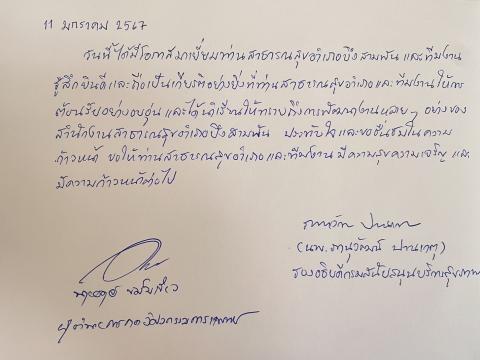 11 มกราคม 2567
วันนี้ได้มีโอกาสมาเยี่ยมท่านสาธารณสุขอำเภอบึงสามพัน และทีมงาน
รู้สึกยินดีและถือเป็นเกียรติอย่างยิ่งที่ท่านสาธารณสุขอำเภอและทีมงานให้การ
ต้อนรับอย่างอบอุ่น และได้นำเรียนให้ทราบถึงการพัฒนางานหลายๆ อย่างของ
สำนักงานสาธารณสุขอำเภอบึงสามพัน ประทับใจและขอชื่นชมในความ
ก้าวหน้า ขอให้ท่านสาธารณสุขอำเภอและทีมงาน มีความสุขความเจริญ และ
มีความก้าวหน้าต่อไป
(นพ.ภานุวัฒน์ ปานเกตุ)
รองอธิบดีกรมสนับสนุนบริการสุขภาพ
ผู้อำนวยการกองวิศวกรรมการแพทย์